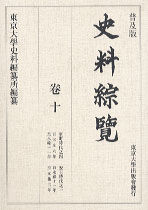 普及版
東京大學史料編纂所編纂
史料綜覽
卷十
東京大學出版會發行